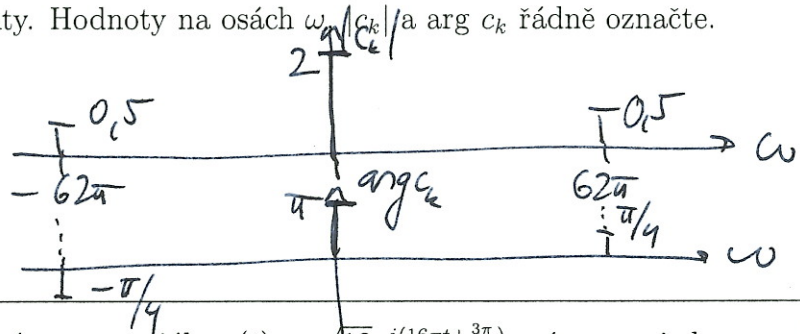 ty. Hodnoty na osách ω, |cₖ| a arg cₖ řádně označte.
|cₖ|
2
0,5 0,5
ω
- 62π 62π
arg cₖ
π
π/4
ω
- π/4